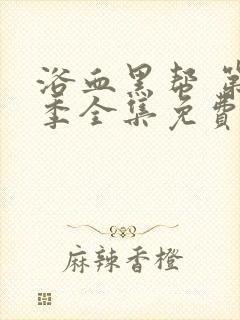 浴血黑帮 第
季全集免费
麻辣香橙